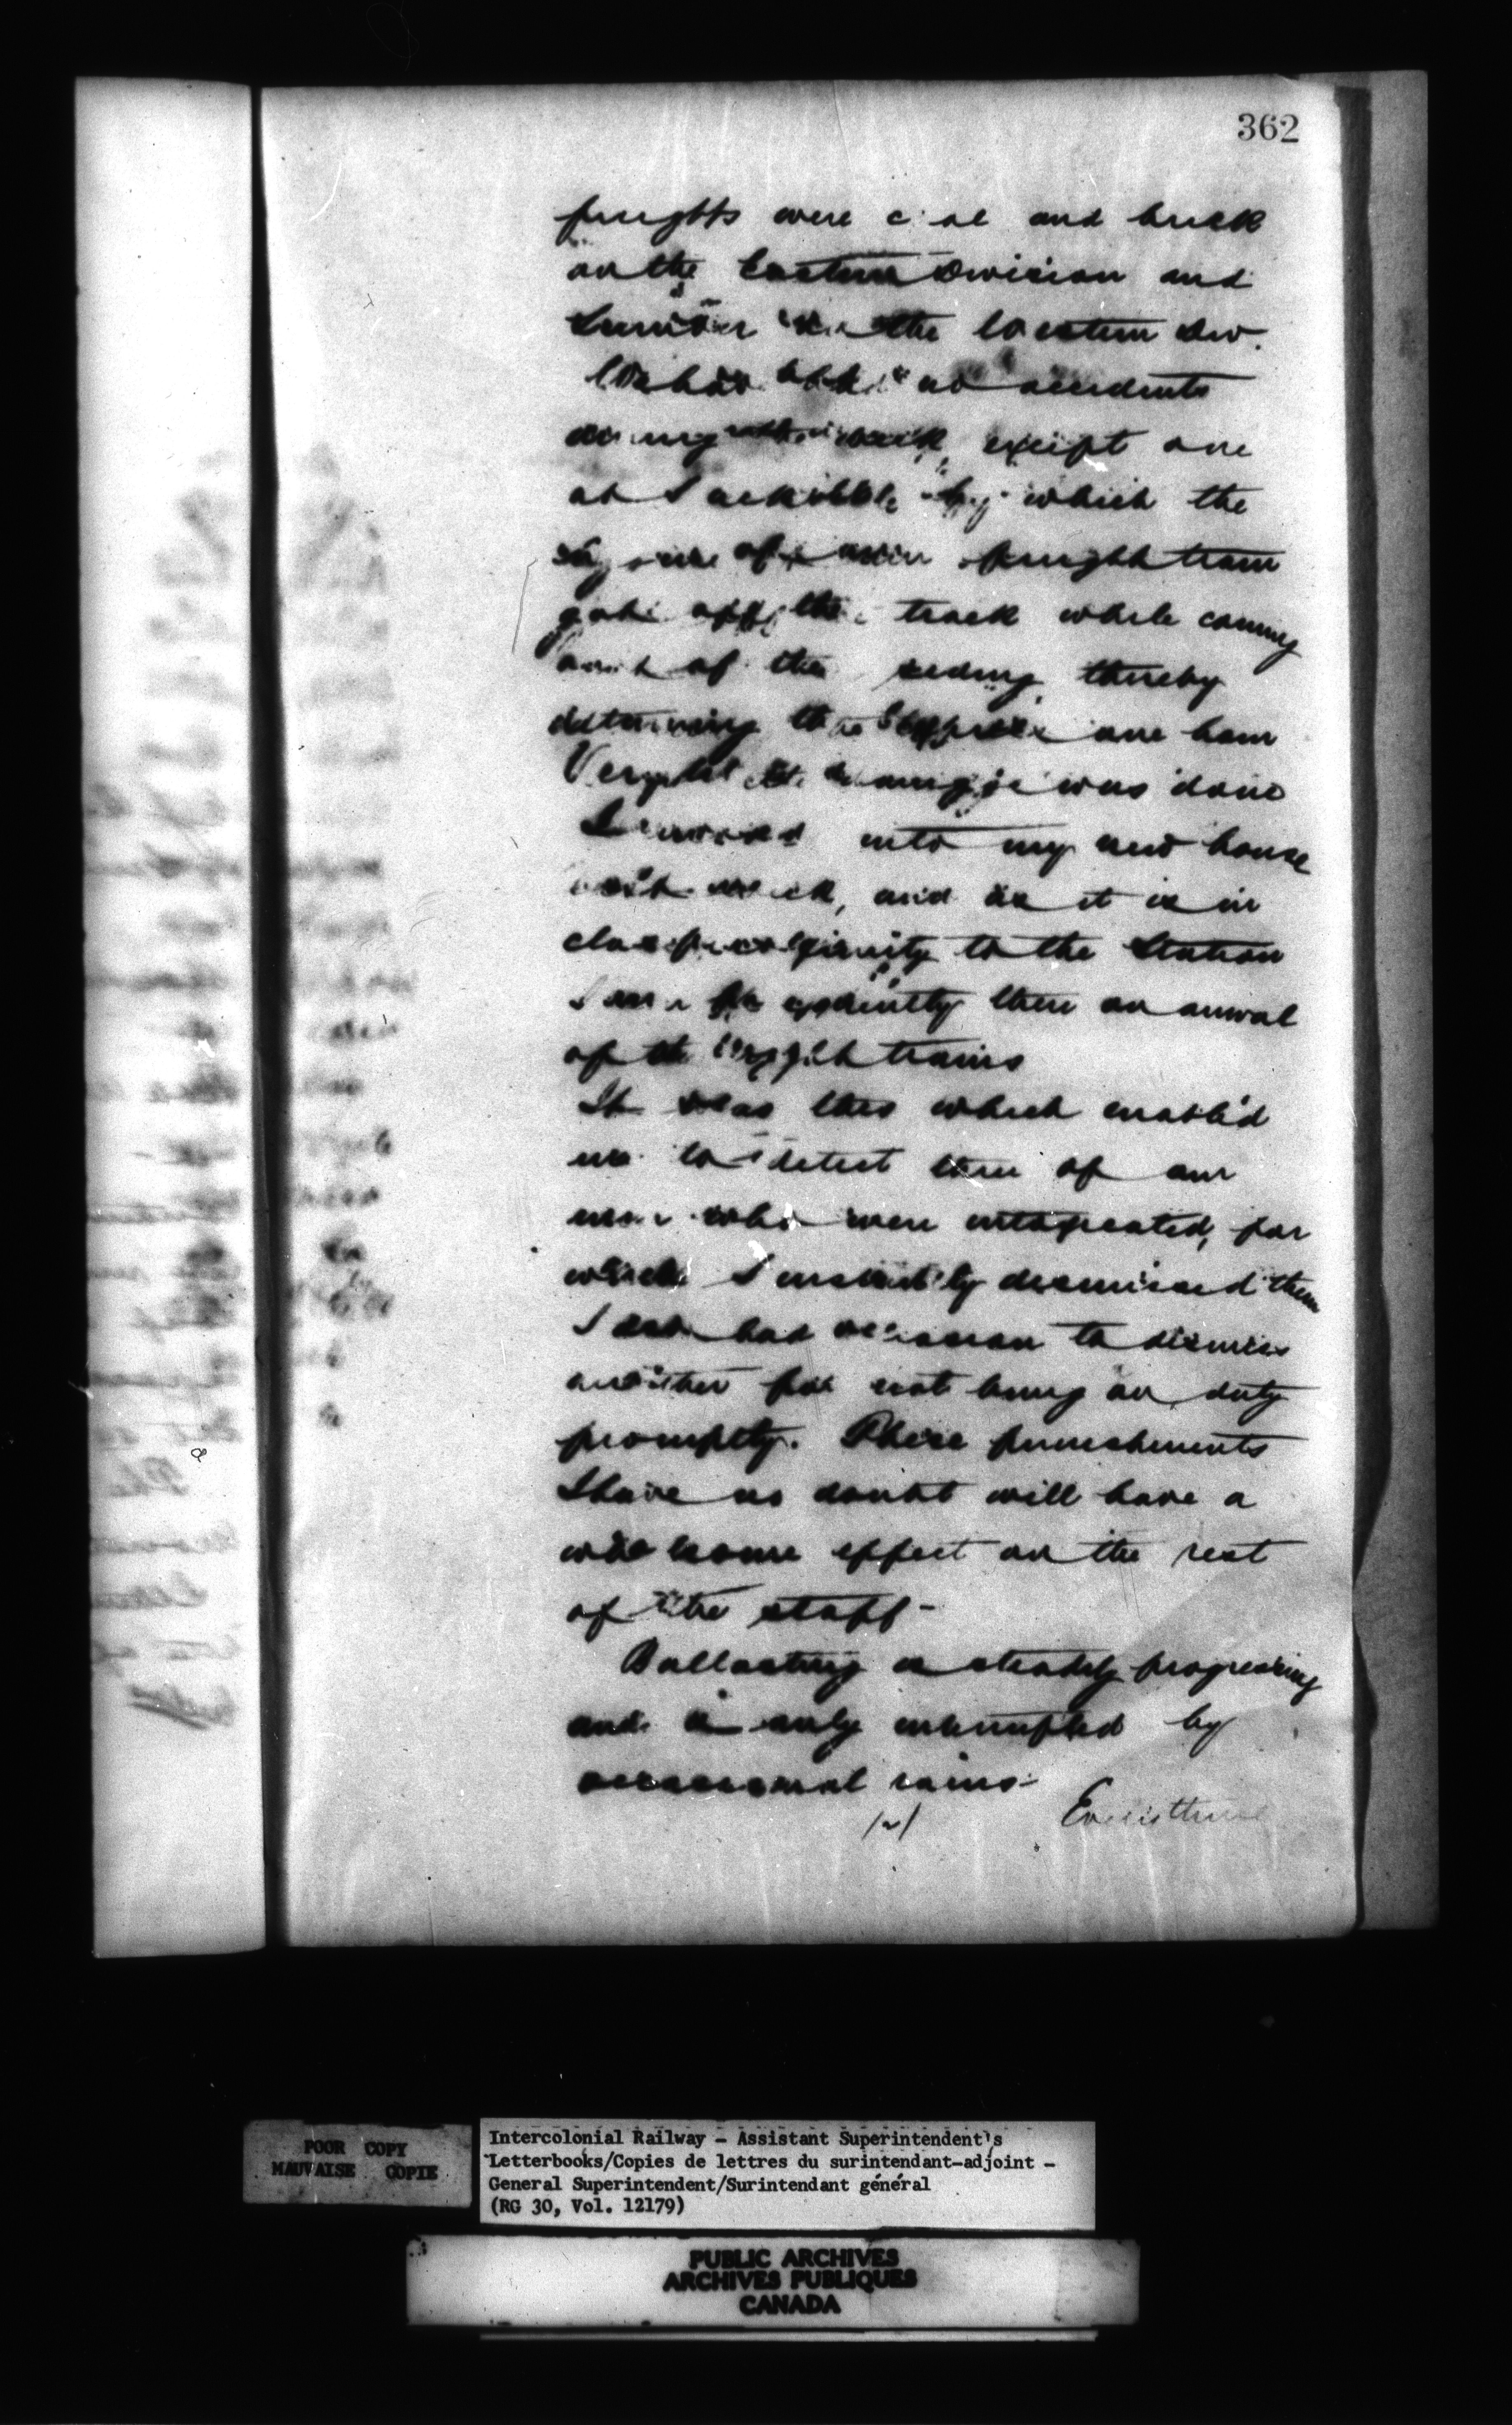 362
freights were coal and brick
on the Eastern Division and
Lumber on the Western Div.
We had no accidents
during the week, except one
at Sackville by which the
engine of a freight train
got off the track while coming
out of the siding thereby
detaining the Express one hour
Very little damage was done
I moved into my new house
last week, and as it is in
close proximity to the Station
I am frequently there on arrival
of the night trains
It was this which enabled
me to detect three of our
men who were intoxicated, for
which I instantly dismissed them
I also had occasion to dismiss
another for not being on duty
promptly. These punishments
I have no doubt will have a
wholesome effect on the rest
of the staff -
Ballasting is steadily progressing
and is only interrupted by
occasional rains -
Everything
POOR COPY
MAUVAISE COPIE
Intercolonial Railway - Assistant Superintendent's
Letterbooks/Copies de lettres du surintendant-adjoint -
General Superintendent/Surintendant général
(RG 30, Vol. 12179)
PUBLIC ARCHIVES
ARCHIVES PUBLIQUES
CANADA